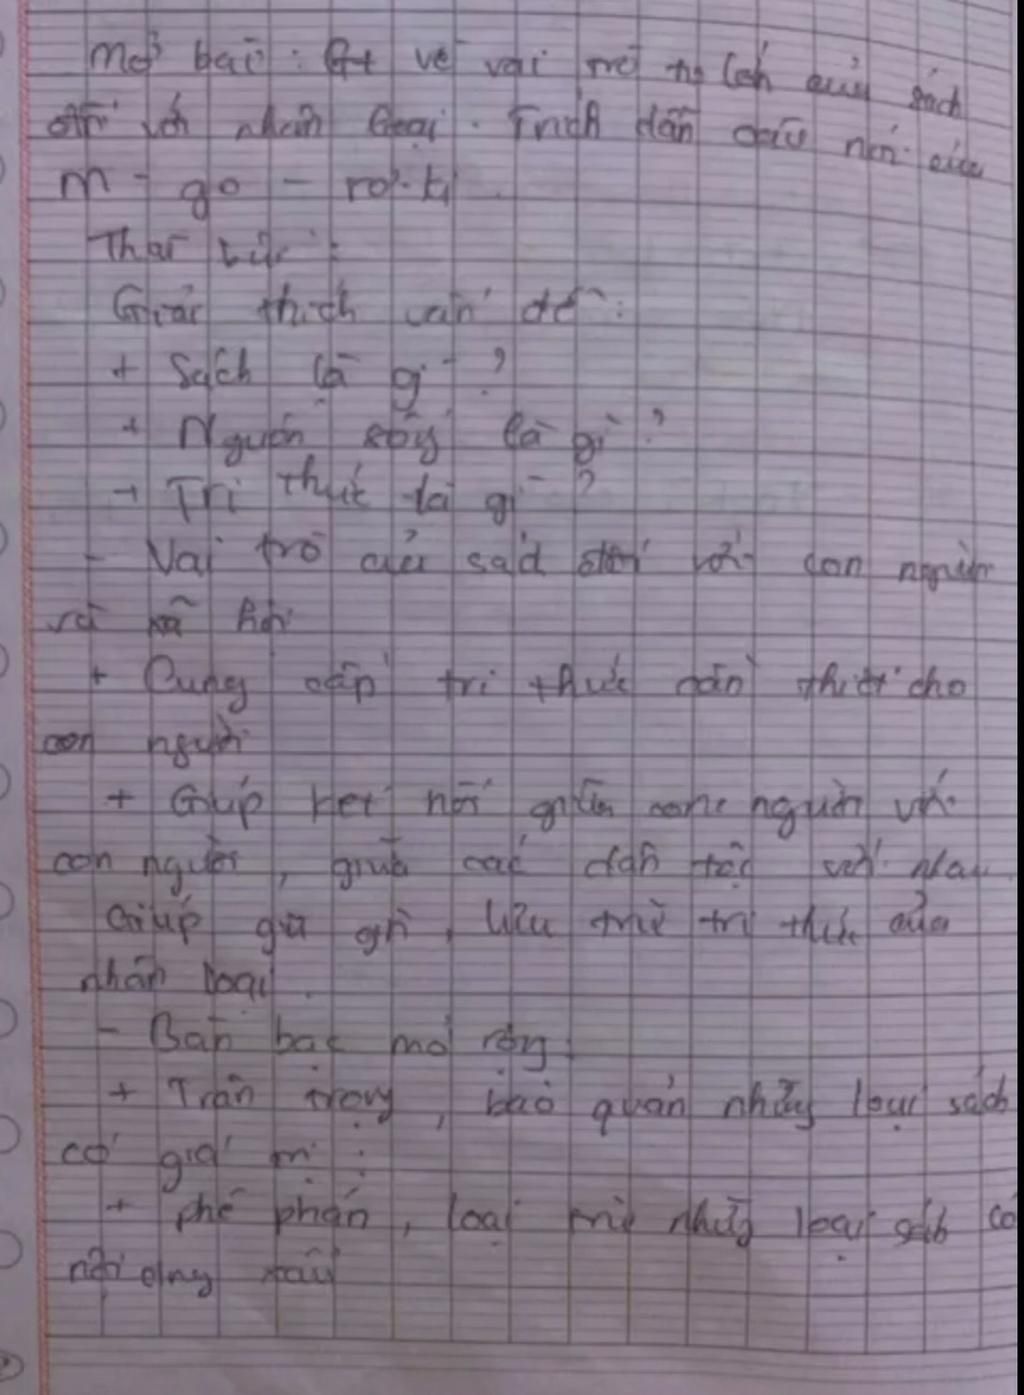 Mở bài : Gt về vai trò to lớn của sách
đối với nhân loại . Trích dẫn câu nói của
M - go - rơ - ki .
Thân bài :
Giải thích vấn đề :
+ Sách là gì ?
+ Nguồn sống là gì ?
+ Tri thức là gì ?
- Vai trò của sách đối với con người
và xã hội
+ Cung cấp tri thức cần thiết cho
con người
+ Giúp kết nối giữa con người với
con người , giữa các dân tộc với nhau
Giúp giữ gìn , lưu trữ tri thức của
nhân loại .
- Bàn bạc mở rộng :
+ Trân trọng , bảo quản những loại sách
có giá trị :
+ phê phán , loại trừ những loại sách có
nội dung xấu